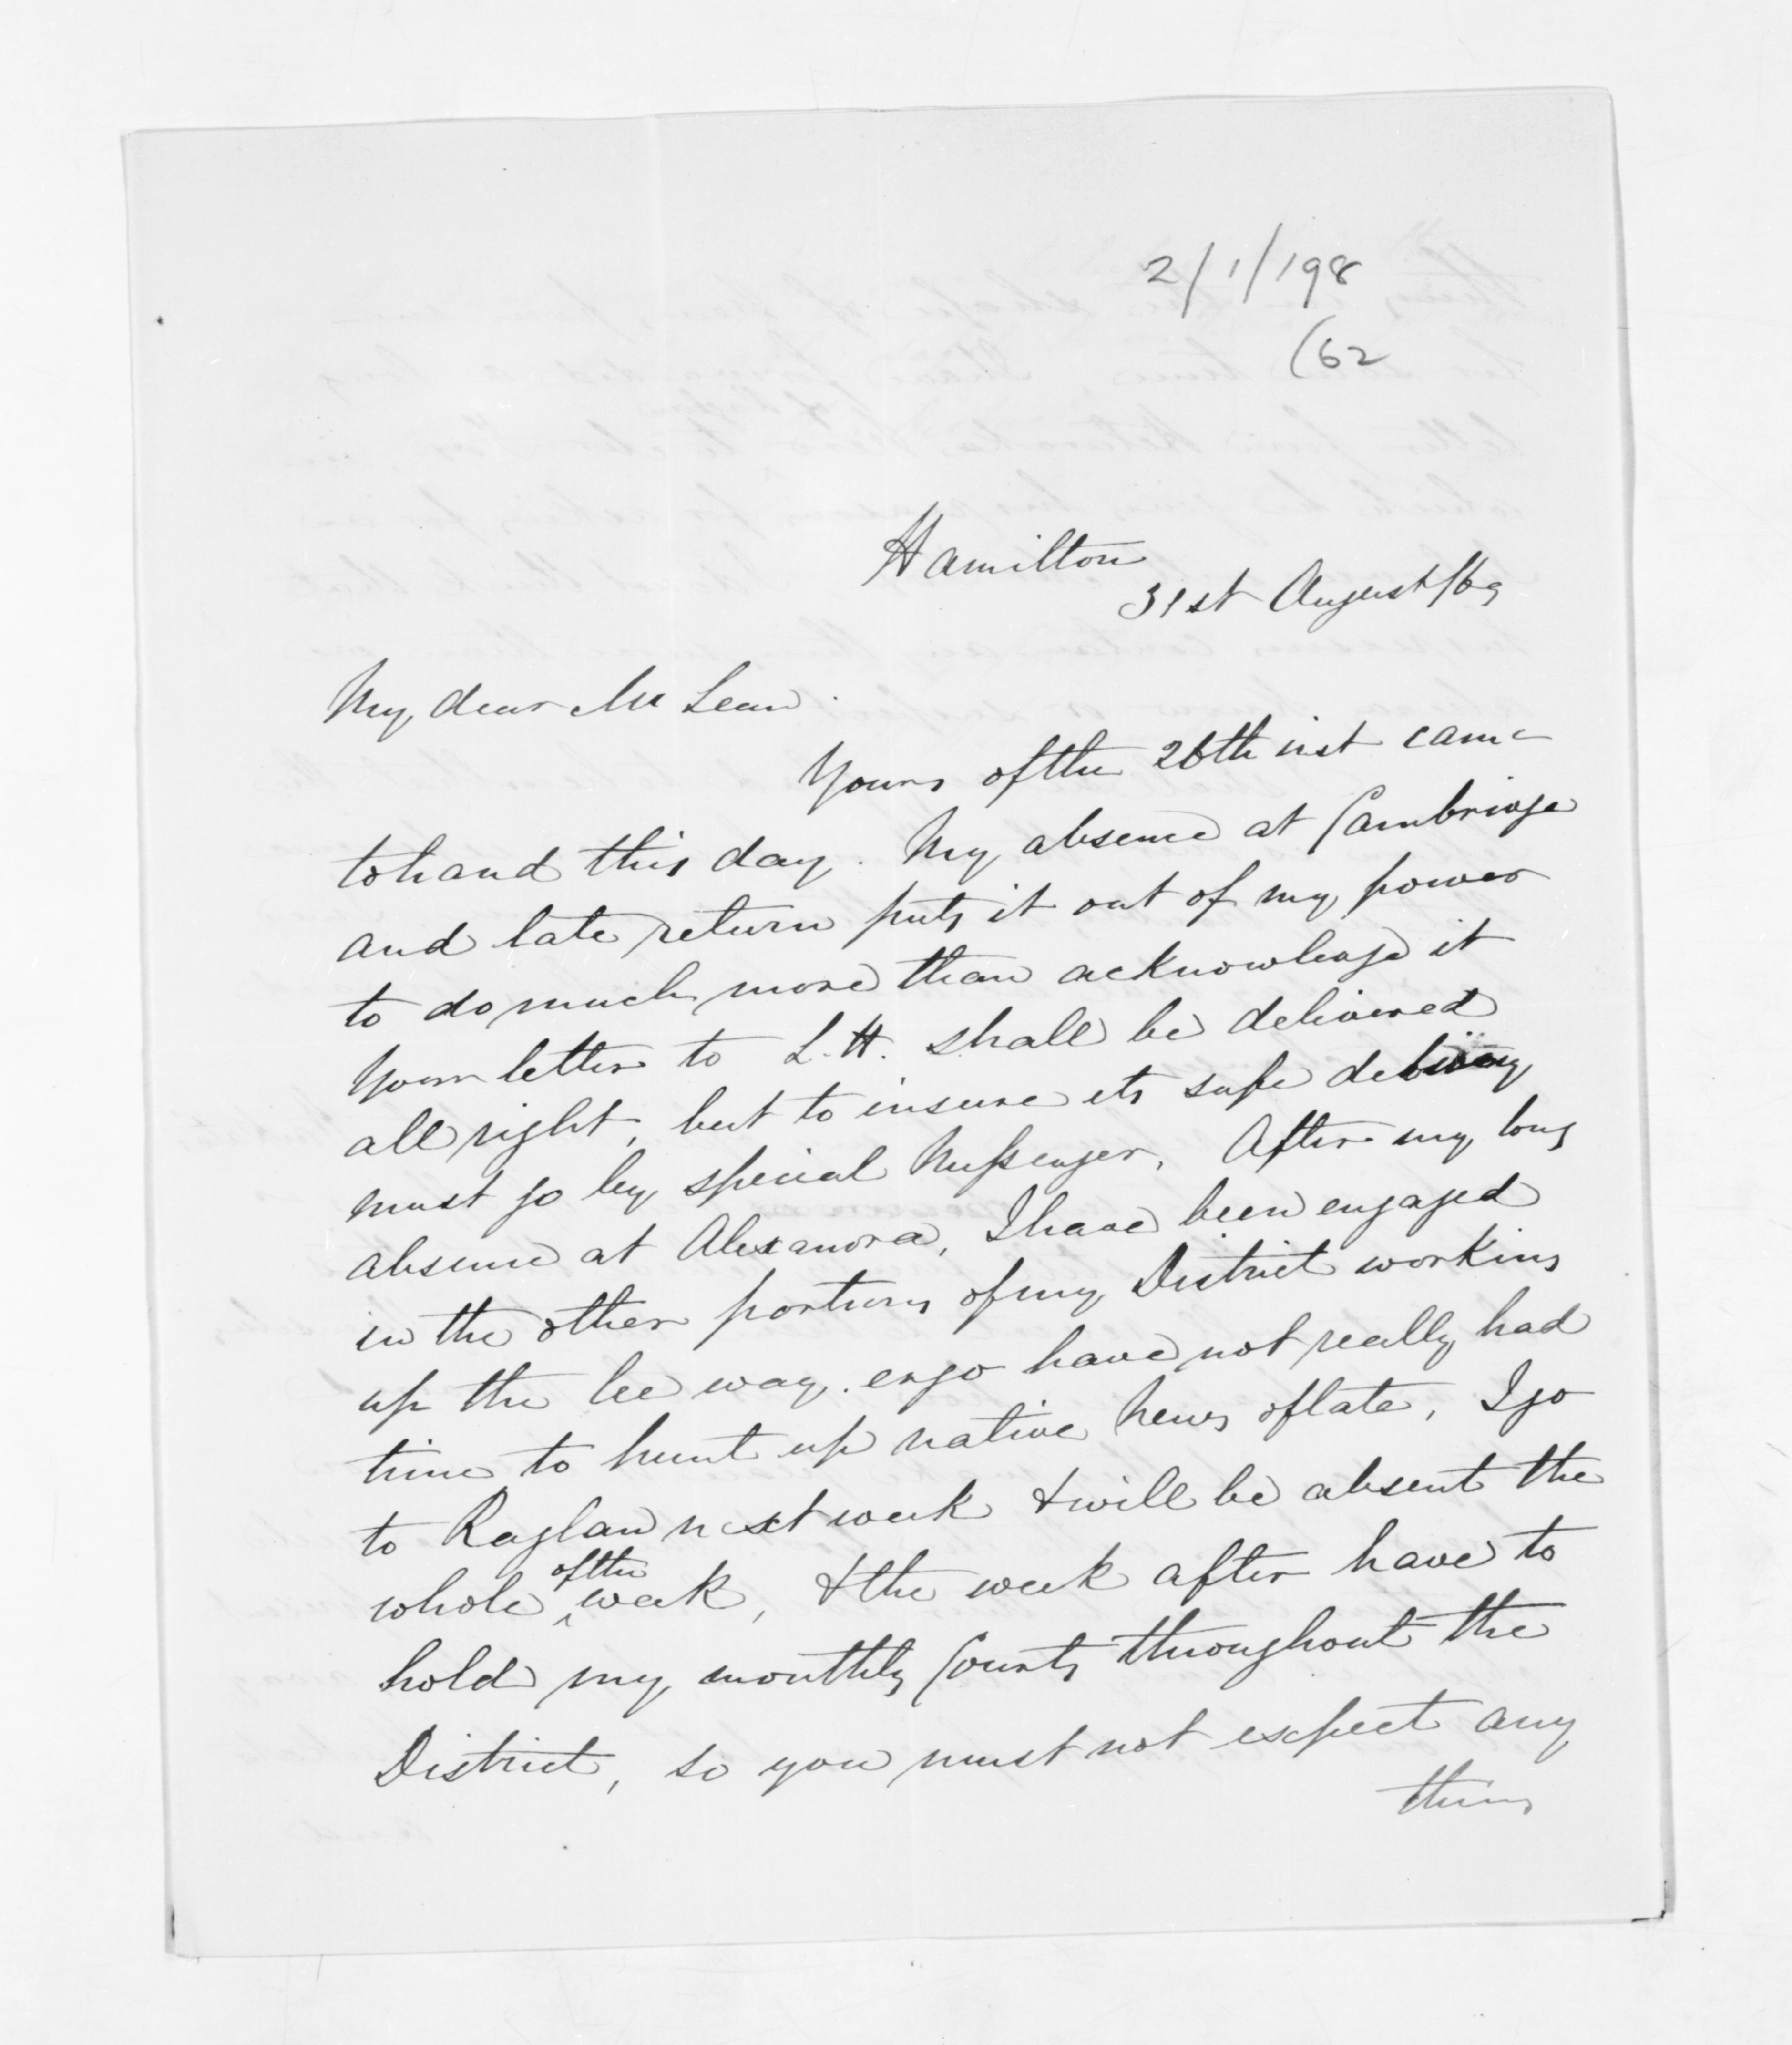 2/1/198
(62
Hamilton
31st August/69
My dear McLean
Yours of the 26th inst came
to hand this day. My absence at Cambridge
and late return puts it out of my power
to do much more than acknowledge it
Your letter to L.H. shall be delivered
all right, but to insure its safe delivery
must go by special Messenger. After my long
absence at Alexandra, I have been engaged
in the other portions of my District working
up the lee way. ergo have not really had
time to hunt up native news of late, I go
to Raglan next week & will be absent the
whole of the week, & the week after have to
hold my monthly Courts throughout the
District, so you must not expect any
thing